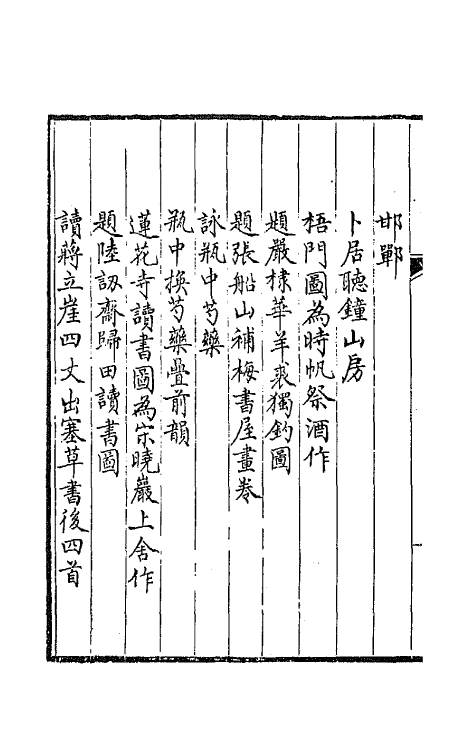 邯鄲
卜居聽鐘山房
梧門圖為時帆祭酒作
題嚴棣華羊裘獨釣圖
題張船山補梅書屋畫卷
詠瓶中芍藥
瓶中換芍藥疊前韻
蓮花寺讀書圖為宋曉巖上舍作
題陸訒齋歸田讀書圖
讀蔣立崖四丈出塞草書後四首